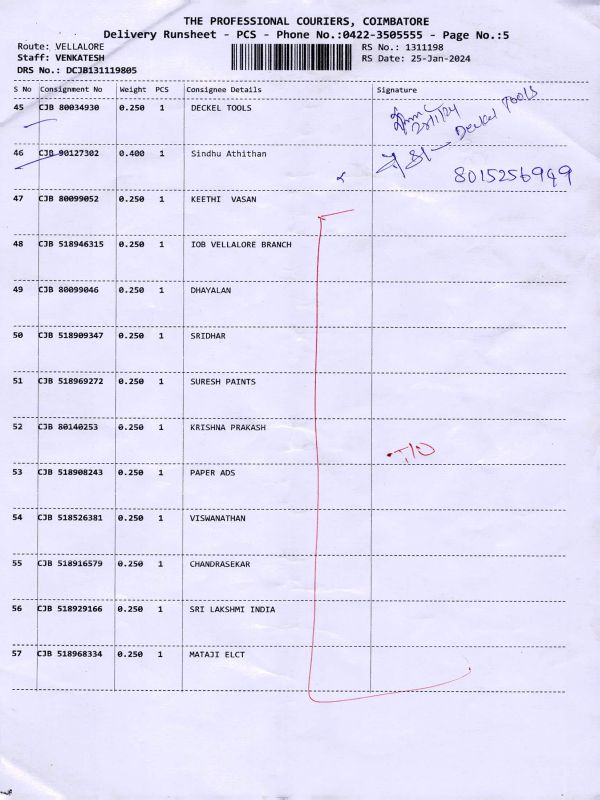 THE PROFESSIONAL COURIERS, COIMBATORE
Delivery Runsheet - PCS - Phone No.:0422-3505555 - Page No.:5
Route: VELLALORE RS No.: 1311198
Staff: VENKATESH RS Date: 25-Jan-2024
DRS No.: DCJB131119805
S No Consignment No Weight PCS Consignee Details Signature
45 CJB 80034930 0.250 1 DECKEL TOOLS
25/1/24 Deckel TOOLS
46 CJB 90127302 0.400 1 Sindhu Athithan
8015256949
47 CJB 80099052 0.250 1 KEETHI VASAN
48 CJB 518946315 0.250 1 IOB VELLALORE BRANCH
49 CJB 80099046 0.250 1 DHAYALAN
50 CJB 518909347 0.250 1 SRIDHAR
51 CJB 518969272 0.250 1 SURESH PAINTS
52 CJB 80140253 0.250 1 KRISHNA PRAKASH
T/O
53 CJB 518908243 0.250 1 PAPER ADS
54 CJB 518526381 0.250 1 VISWANATHAN
55 CJB 518916579 0.250 1 CHANDRASEKAR
56 CJB 518929166 0.250 1 SRI LAKSHMI INDIA
57 CJB 518968334 0.250 1 MATAJI ELCT